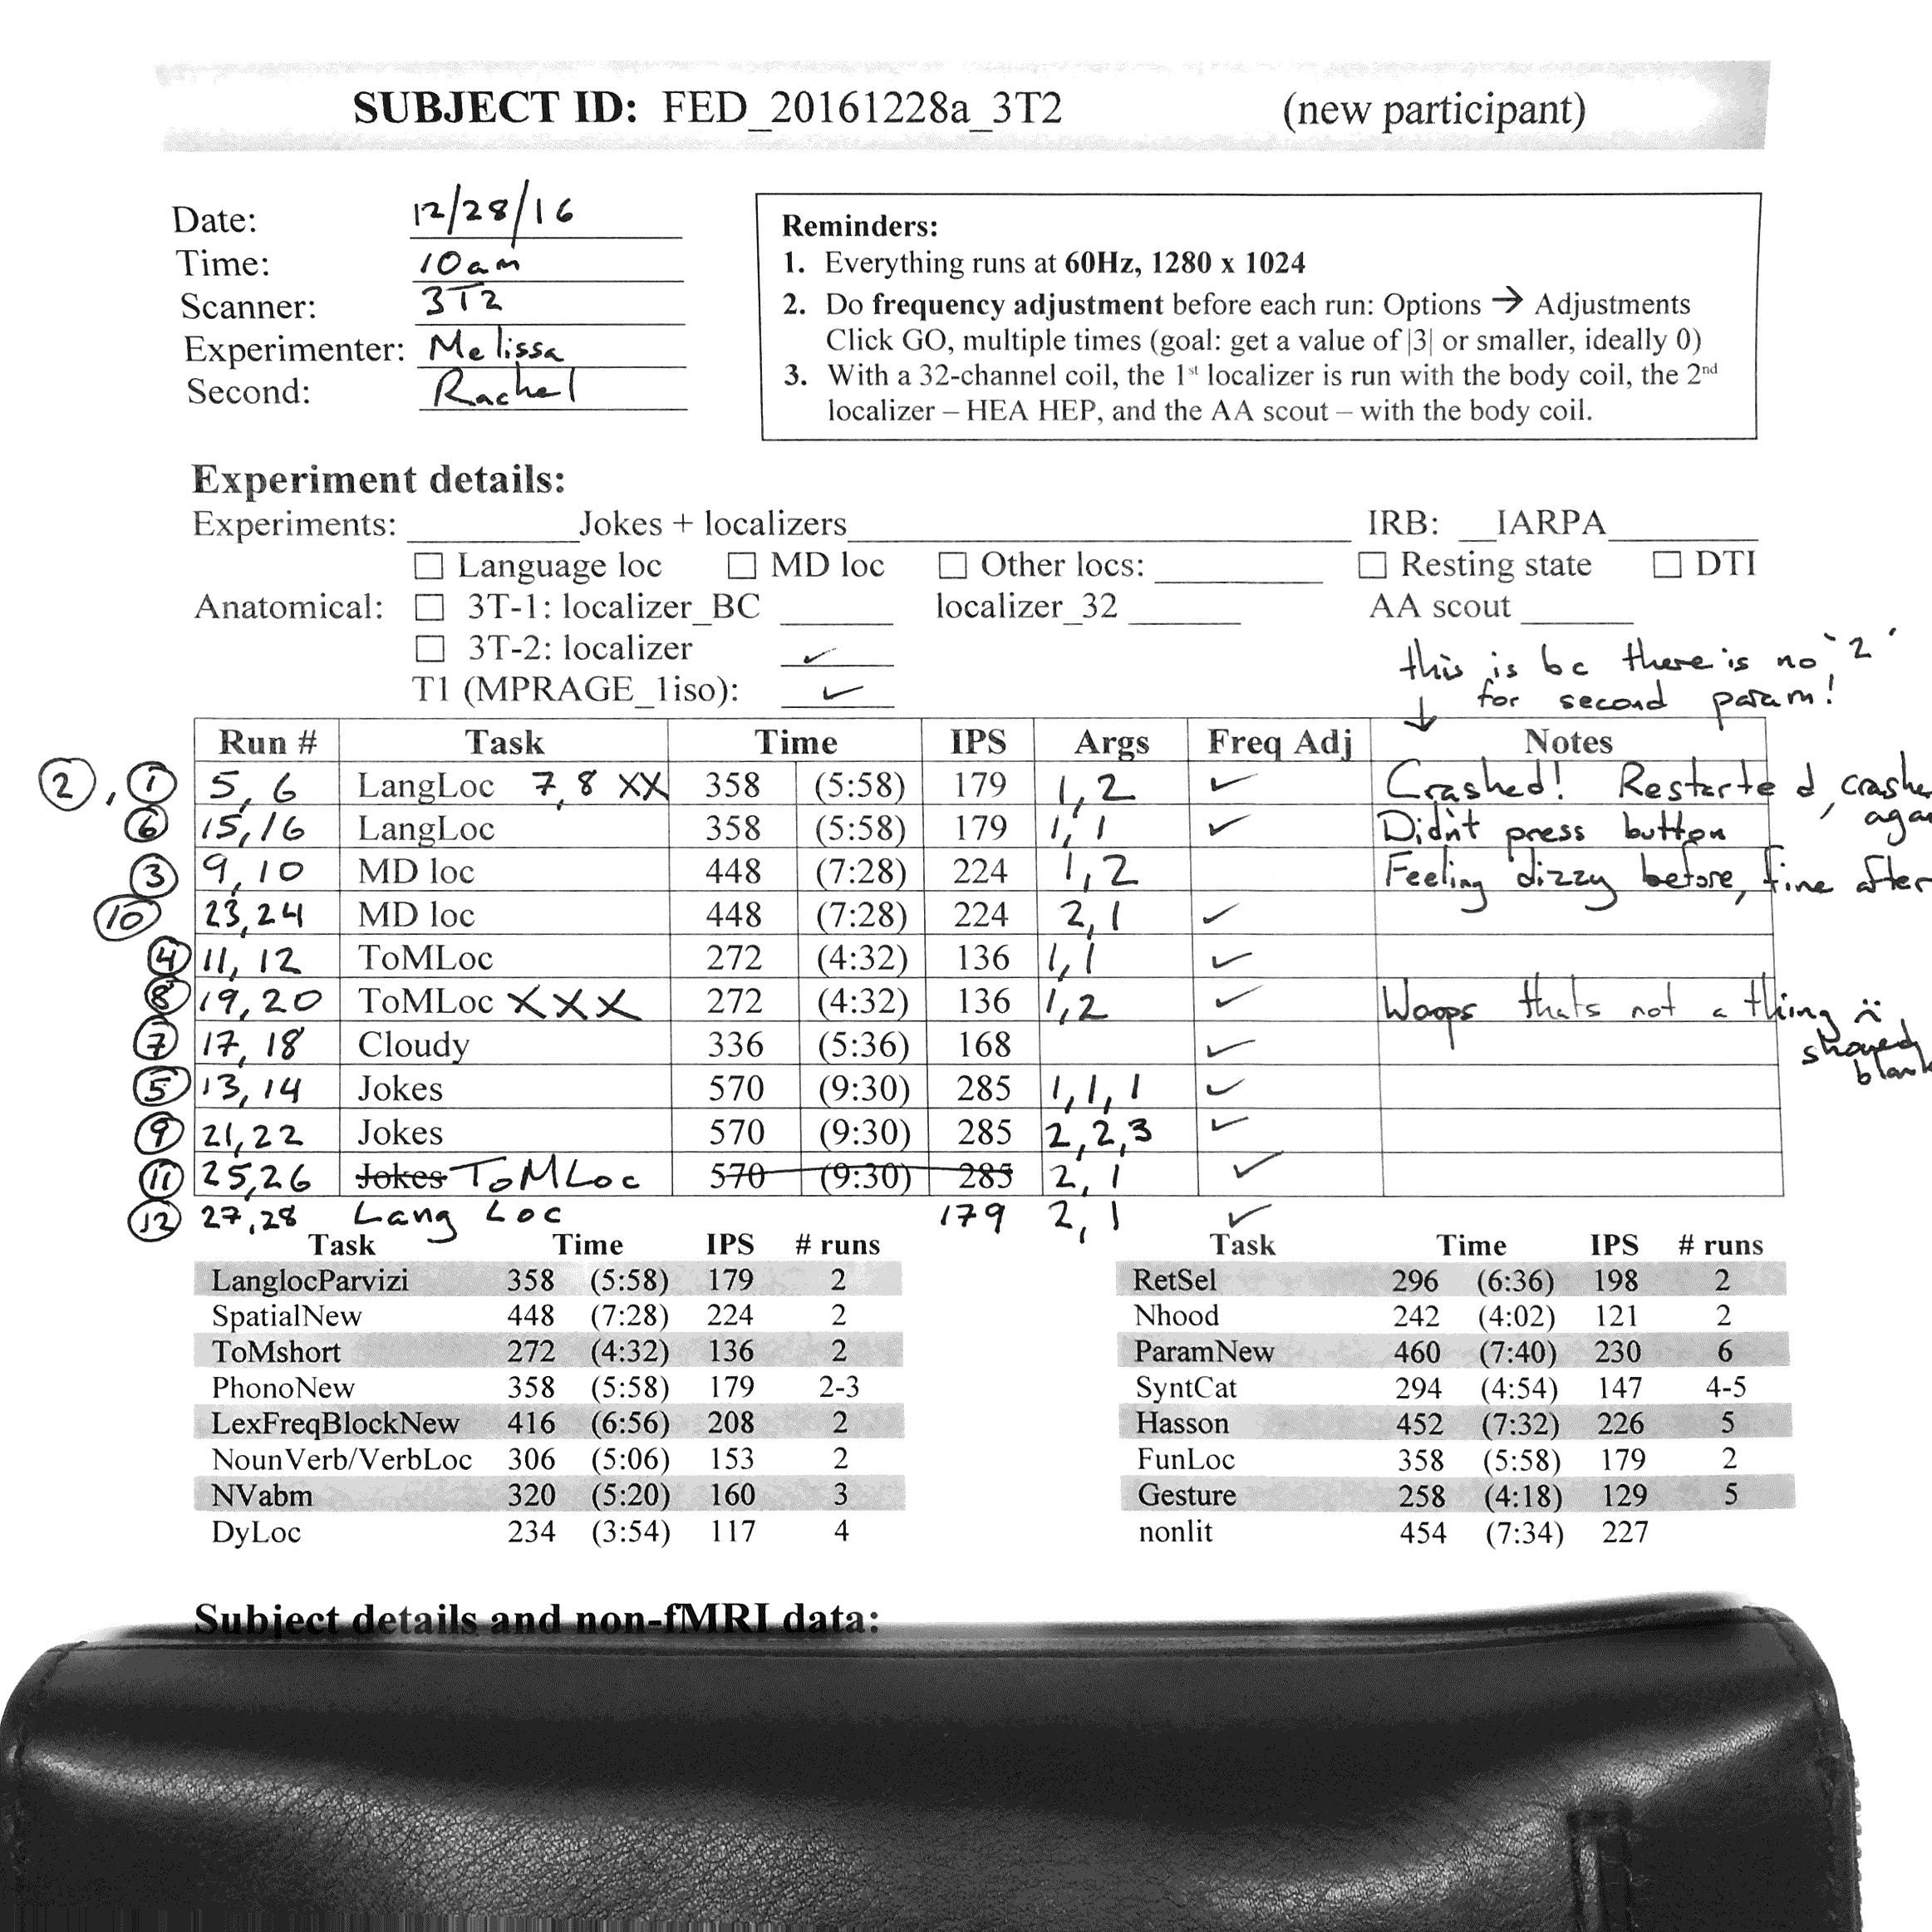 SUBJECT ID: FED_20161228a_3T2 (new participant)
Date: 12/28/16
Time: 10am
Scanner: 3T2
Experimenter: Melissa
Second: Rachel
Reminders:
1. Everything runs at 60Hz, 1280 x 1024
2. Do frequency adjustment before each run: Options → Adjustments
Click GO, multiple times (goal: get a value of |3| or smaller, ideally 0)
3. With a 32-channel coil, the 1st localizer is run with the body coil, the 2nd
localizer – HEA HEP, and the AA scout – with the body coil.
Experiment details:
Experiments: ________Jokes + localizers________ IRB: __IARPA______
☐ Language loc ☐ MD loc ☐ Other locs: ________ ☐ Resting state ☐ DTI
Anatomical: ☐ 3T-1: localizer_BC ______ localizer_32 ______ AA scout ______
☐ 3T-2: localizer ✓
T1 (MPRAGE_1iso): ✓
this is bc there is no '2'
for second param!
↓
Run # Task Time IPS Args Freq Adj Notes
②, ① 5, 6 LangLoc 7, 8 XX 358 (5:58) 179 1, 2 ✓ Crashed! Restarted,
⑥ 15, 16 LangLoc 358 (5:58) 179 1, 1 ✓ Didn't press button
③ 9, 10 MD loc 448 (7:28) 224 1, 2 Feeling dizzy before, fine after
⑩ 23, 24 MD loc 448 (7:28) 224 2, 1 ✓
④ 11, 12 ToMLoc 272 (4:32) 136 1, 1 ✓
⑧ 19, 20 ToMLoc XXX 272 (4:32) 136 1, 2 ✓ Woops thats not a thing :(
showed
⑦ 17, 18 Cloudy 336 (5:36) 168 ✓
⑤ 13, 14 Jokes 570 (9:30) 285 1, 1, 1 ✓
⑨ 21, 22 Jokes 570 (9:30) 285 2, 2, 3 ✓
⑪ 25, 26 Jokes ToMLoc 570 (9:30) 285 2, 1 ✓
⑫ 27, 28 Lang Loc 179 2, 1 ✓
Task Time IPS # runs Task Time IPS # runs
LanglocParvizi 358 (5:58) 179 2 RetSel 296 (6:36) 198 2
SpatialNew 448 (7:28) 224 2 Nhood 242 (4:02) 121 2
ToMshort 272 (4:32) 136 2 ParamNew 460 (7:40) 230 6
PhonoNew 358 (5:58) 179 2-3 SyntCat 294 (4:54) 147 4-5
LexFreqBlockNew 416 (6:56) 208 2 Hasson 452 (7:32) 226 5
NounVerb/VerbLoc 306 (5:06) 153 2 FunLoc 358 (5:58) 179 2
NVabm 320 (5:20) 160 3 Gesture 258 (4:18) 129 5
DyLoc 234 (3:54) 117 4 nonlit 454 (7:34) 227
Subject details and non-fMRI data: